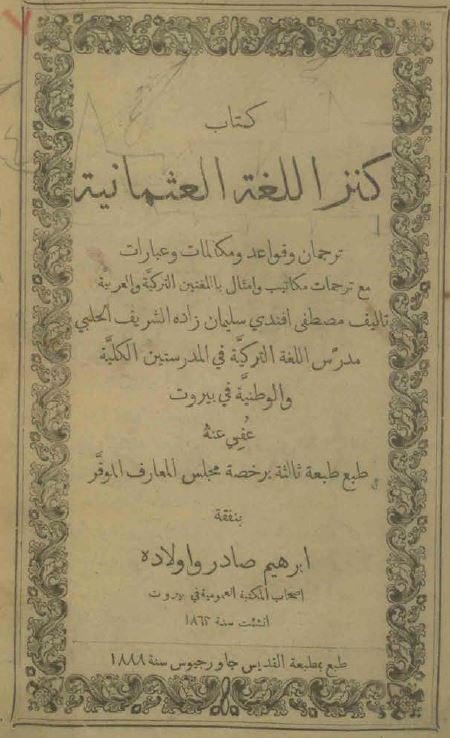 كتاب
كنز اللغة العثمانية
ترجمان وقواعد ومكالمات وعبارات
مع ترجمات مكاتيب وامثال باللغتين التركيَّة والعربيَّة
تاليف مصطفى افندي سليمان زاده الشريف الحلبي
مدرّس اللغة التركيَّة في المدرستين الكليَّة
والوطنيَّة في بيروت
عُفِي عنهُ
طبع طبعة ثالثة برخصة مجلس المعارف الموقَّر
بنفقة
ابرهيم صادر واولاده
اصحاب المكتبة العمومية في بيروت
انشئت سنة ١٨٦٣
طبع بمطبعة القديس جاورجيوس سنة ١٨٨٨